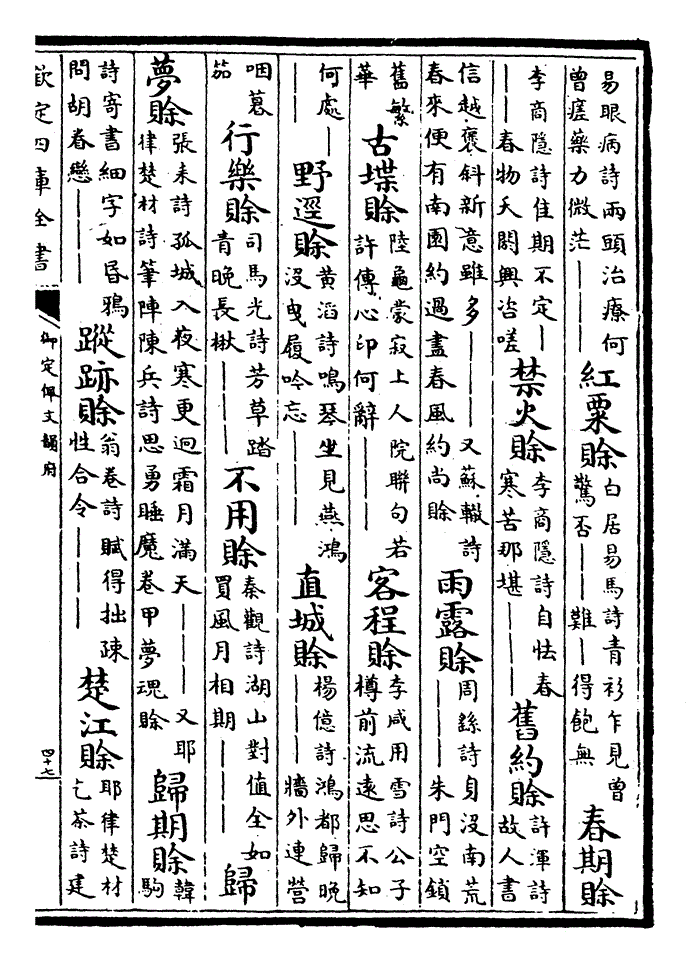 易眼病詩兩頭治療何曾瘥藥力微茫｜｜｜紅粟賖白居易馬詩青衫乍見曾驚否｜｜難｜得飽無春期賖
李商隱詩佳期不定｜｜｜春物夭閼興咨嗟禁火賖李商隱詩自怯春寒苦那堪｜｜｜舊約賖許渾詩故人書
信越褒斜新意雖多｜｜｜又蘇轍詩春來便有南園約過盡春風約尚賖雨露賖周繇詩身没南荒｜｜｜朱門空鎖
舊繁華古堞賖陸龜蒙寂上人院聯句若許傳心印何辭｜｜｜客程賖李咸用雪詩公子樽前流遠思不知
何處｜｜｜野逕賖黃滔詩鳴琴坐見燕鴻没曳履吟忘｜｜｜直城賖楊億詩鴻都歸晚｜｜｜牆外連營
咽暮笳行樂賖司馬光詩芳草踏青晚長楸｜｜｜不用賖秦觀詩湖山對值全如買風月相期｜｜｜歸
夢賖張耒詩孤城入夜寒更迥霜月滿天｜｜｜又耶律楚材詩筆陣陳兵詩思勇睡魔卷甲夢魂賖歸期賖韓駒
詩寄書細字如昏鴉問胡春戀｜｜｜蹤跡賖翁卷詩賦得拙踈性合令｜｜｜楚江賖耶律楚材乞茶詩建
欽定四庫全書
御定佩文韻府
四十七